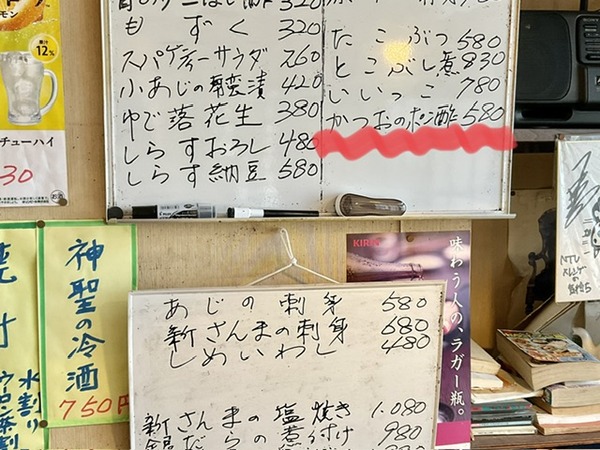 320
もずく 320
スパゲティーサラダ 260
小あじの南蛮漬 420
ゆで落花生 380
しらすおろし 480
しらす納豆 580
たこぶつ 580
とこぶし煮 830
いいっこ 780
かつおのポン酢 580
12%
チューハイ
30
神聖の冷酒
750円
水割り
ウーロン茶割
KIRIN
味わう人の、ラガー瓶。
あじの刺身 580
新さんまの刺身 680
しめいわし 480
新さんまの塩焼き 1.080
銀だらの煮付け 980